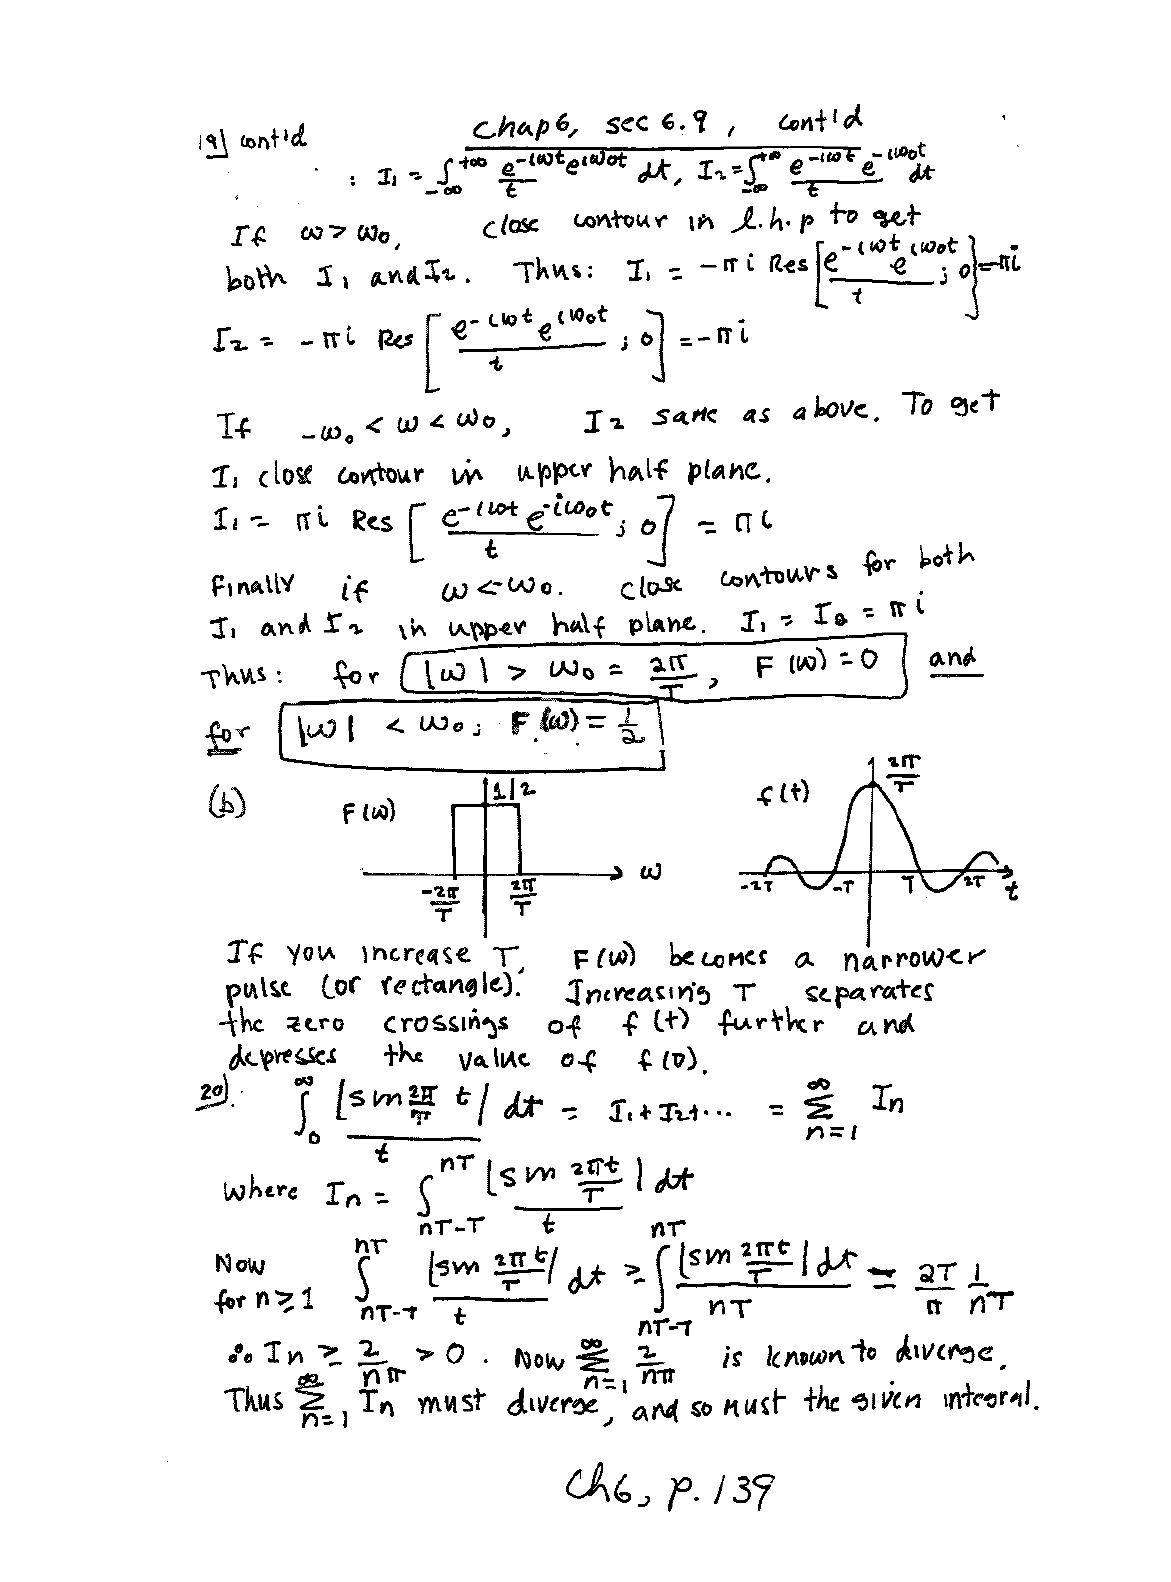 19) cont'd Chap 6, sec 6.9, cont'd
: I₁ = ∫_{-∞}^{+∞} e^{-iωt}e^{iω₀t}/t dt, I₂ = ∫_{-∞}^{+∞} e^{-iωt}e^{-iω₀t}/t dt
If ω > ω₀, close contour in l.h.p to get
both I₁ and I₂. Thus: I₁ = -πi Res[e^{-iωt}e^{iω₀t}/t ; 0] = -πi
I₂ = -πi Res[e^{-iωt}e^{iω₀t}/t ; 0] = -πi
If -ω₀ < ω < ω₀, I₂ same as above. To get
I₁ close contour in upper half plane.
I₁ = πi Res[e^{-iωt}e^{-iω₀t}/t ; 0] = πi
Finally if ω < -ω₀. close contours for both
I₁ and I₂ in upper half plane. I₁ = I₂ = πi
Thus: for |ω| > ω₀ = 2π/T, F(ω) = 0 and
for |ω| < ω₀; F(ω) = 1/2
(b) F(ω) 1/2 ω -2π/T 2π/T f(t) 2π/T -2T -T T 2T t
If you increase T, F(ω) becomes a narrower
pulse (or rectangle). Increasing T separates
the zero crossings of f(t) further and
depresses the value of f(0).
20). ∫_0^∞ |sin 2π/T t|/t dt = I₁+I₂+... = Σ_{n=1}^∞ Iₙ
where Iₙ = ∫_{nT-T}^{nT} |sin 2πt/T|/t dt
Now for n≥1 ∫_{nT-T}^{nT} |sin 2πt/T|/t dt ≥ ∫_{nT-T}^{nT} |sin 2πt/T| dt/nT = 2T/π 1/nT
∴ Iₙ ≥ 2/nπ > 0. Now Σ_{n=1}^∞ 2/nπ is known to diverge.
Thus Σ_{n=1}^∞ Iₙ must diverge, and so must the given integral.
Ch6, p. 139